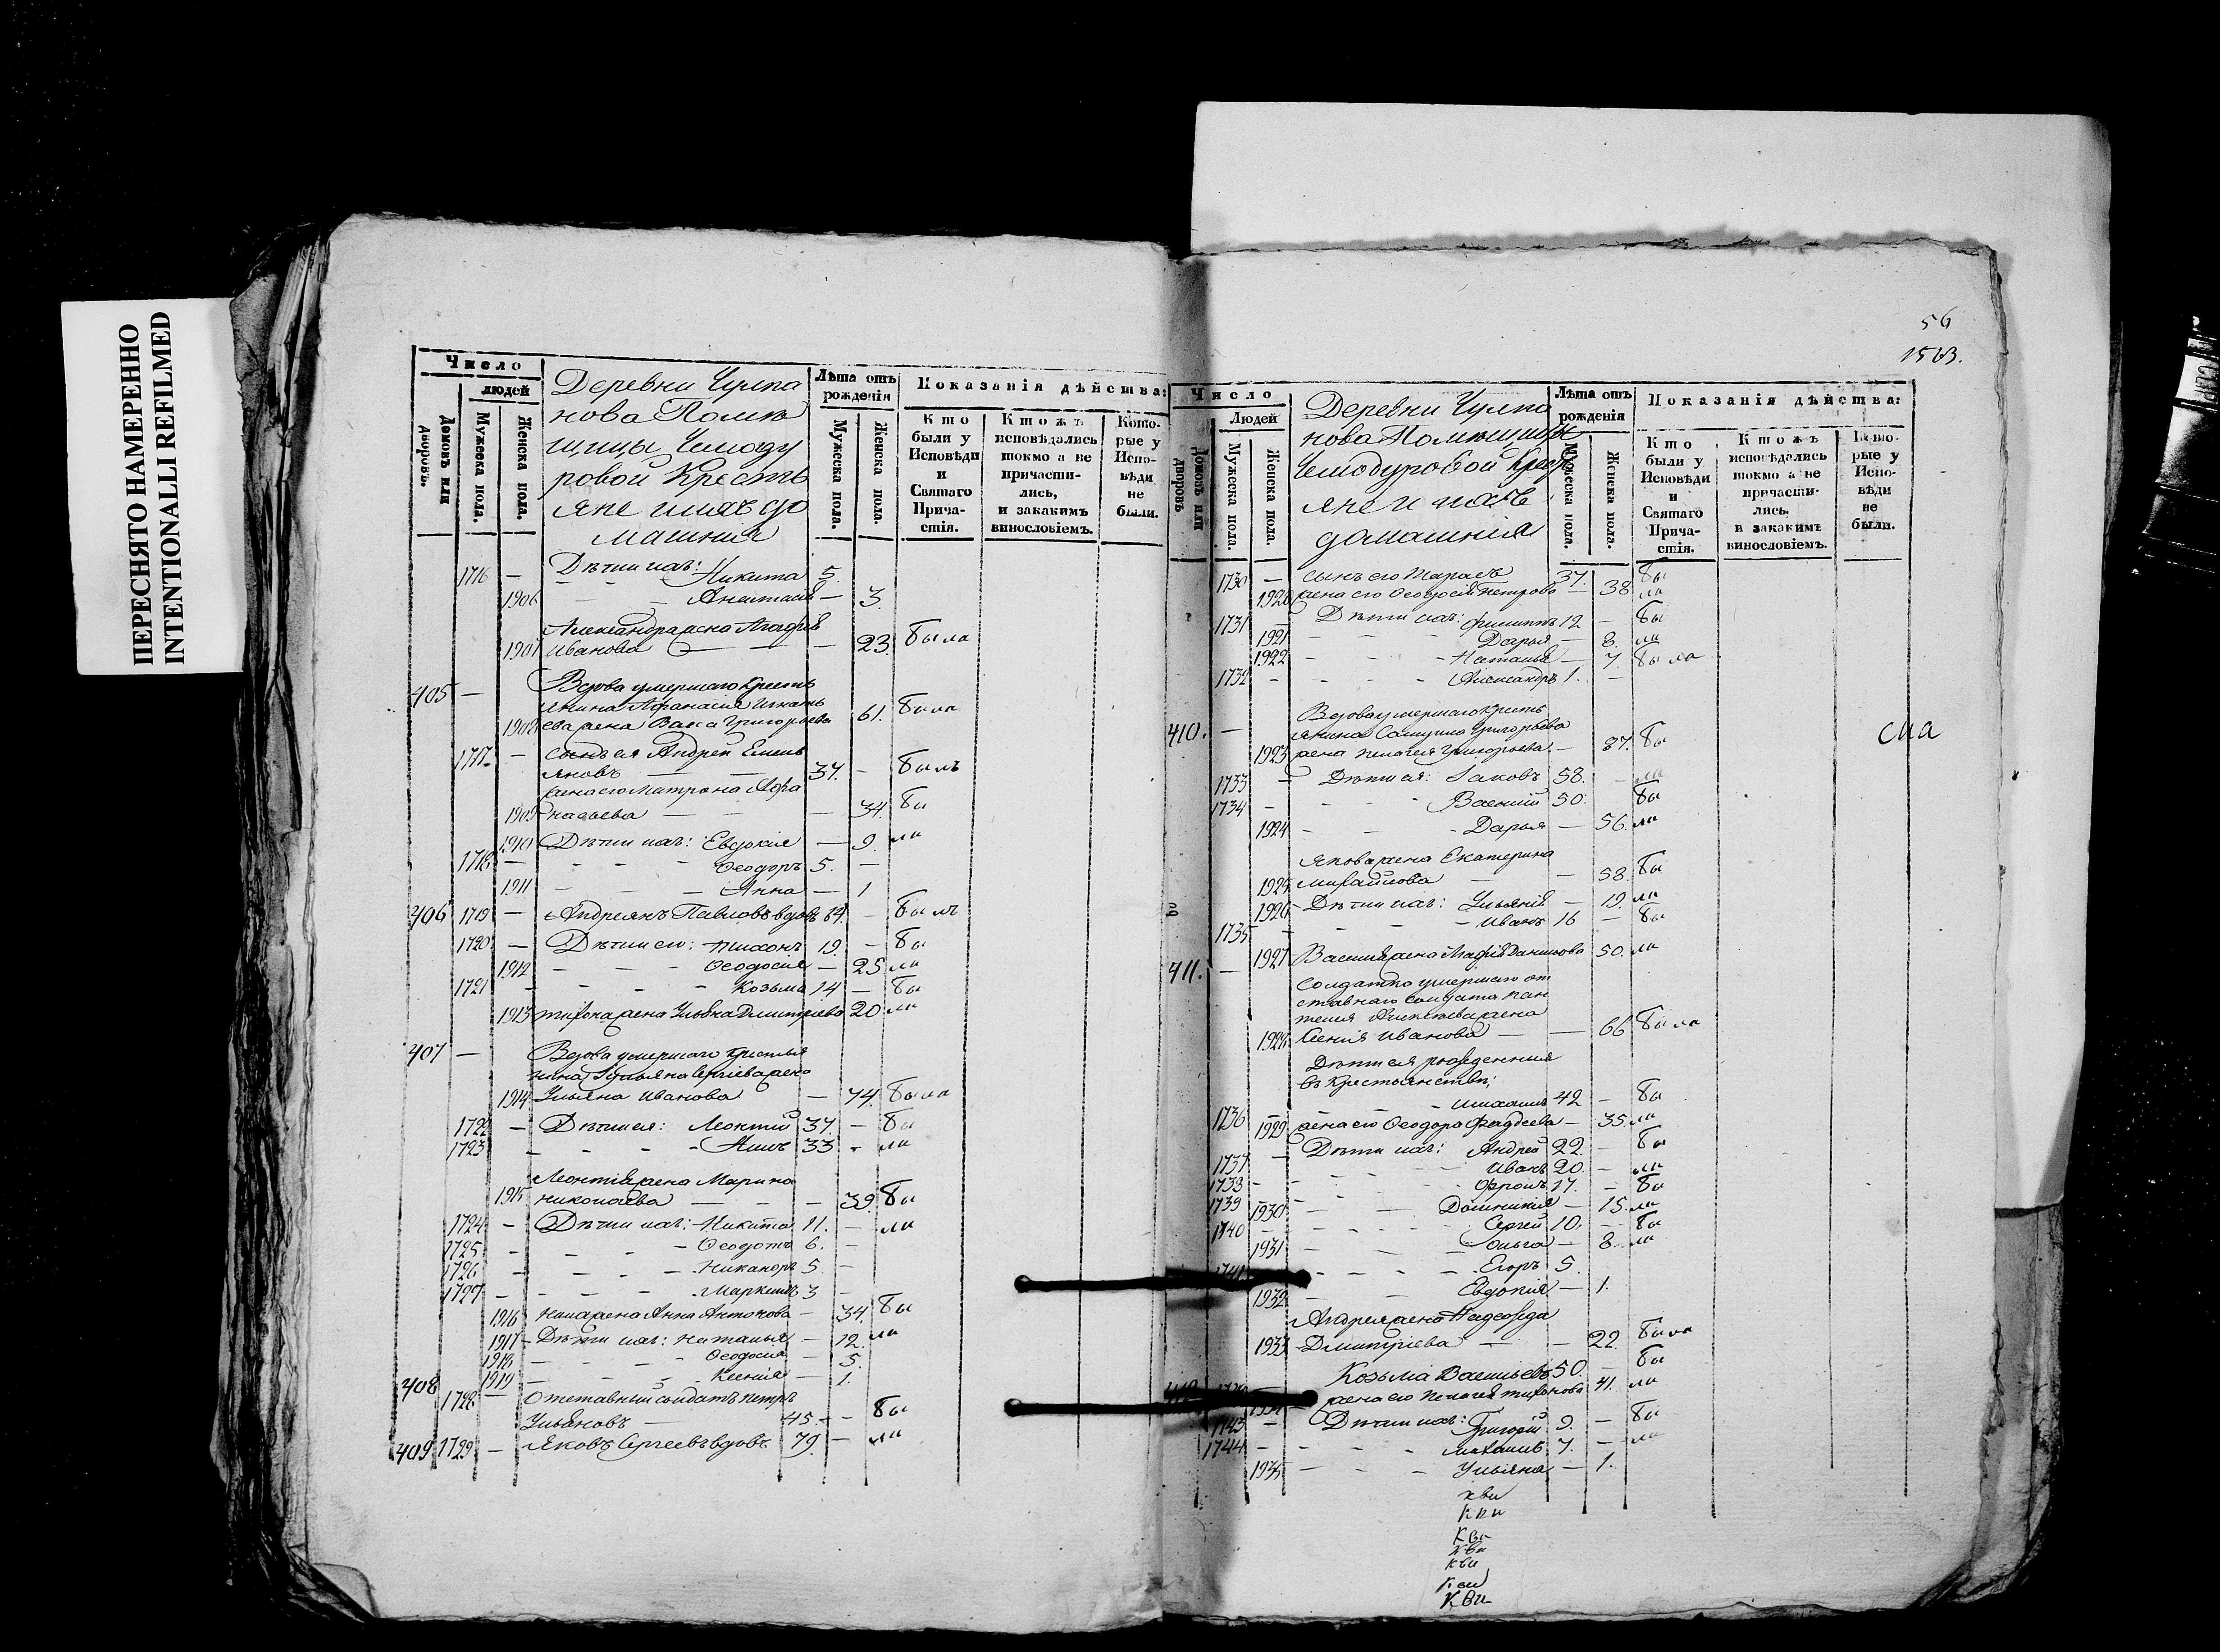 ПЕРЕСНЯТО НАМЕРЕННО
INTENTIONALLI REFILMED
Число
людей
Домовъ или дворовъ.
Мужеска пола.
Женска пола.
Деревни Чулпа
нова Помѣ
щицы Чемоду
ровой Кресть
яне и ихъ до
машнія
Лѣта отъ рожденія
Мужеска пола.
Женска пола.
Показанія дѣйства:
Кто были у Исповѣди и Святаго Прича-стія.
Кто жъ исповѣдались токмо а не причасти-лись, и закакимъ винословіемъ.
Кото-рые у Испо-вѣди не были.
1716 — Дѣти ихъ: Никита 5.
1906 — Анастасія — 3.
Александра жена Агафія
1907 Иванова — 23. была
405 — Вдова умершаго Кресть
янина Афанасія Игнать
1908 ева жена Васса Григорьева 61. была
1717 — сынъ ея Андрей Емель
яновъ — 37. — былъ
жена его Матрона Афа
1909 насьева — 34. бы
1910 Дѣти ихъ: Евдокія — 9. ли
1718 — Ѳеодоръ 5. —
1911 — Анна — 1
406 1719 — Андреянъ Павловъ вдовъ 84. — былъ
1720 — Дѣти его: Тихонъ 19. — бы
1912 — Ѳеодосія — 25 ли
1721 — Козьма 14 — бы
1913 Тихона жена Ульяна Дмитріева 20 ли
407 — Вдова умершаго крестья
нина жена
1914 Ульяна Иванова — 74. была
1722 — Дѣти ея: Леонтій 37. — бы
1723 — 33 - ли
Леонтія жена Марина
1915 Николаева — 39. бы
1724 — Дѣти ихъ: Никита 11. — ли
1725 — Ѳеодотъ 6. —
1726 — Никаноръ 5. —
1727 — 3 —
1916 жена Анна Антонова — 34. бы
1917 Дѣти ихъ: Наталья — 12. ли
1918 — Ѳеодосія — 5.
1919 — Ксенія — 1.
408 1728 — Отставный солдатъ Петръ
Ульяновъ — 45. — бы
409 1729 — Яковъ Сергеевъ вдовъ 79. — ли
56
1563.
Число
Людей
Домовъ или дворовъ
Мужеска пола.
Женска пола.
Деревни Чулпа
нова Помѣщицы
Чемодуровой Крест
яне и ихъ
домашнія
Лѣта отъ рожденія
Мужеска пола.
Женска пола.
Показанія дѣйства:
Кто были у Исповѣди и Святаго Прича-стія.
Кто жъ исповѣдались токмо а не причасти-лись, и закакимъ винословіемъ.
Кото-рые у Испо-вѣди не были.
1730 — сынъ его Тарасъ 37. бы
1920 жена его Ѳеодосія Петрова — 38 ли
1731 Дѣти ихъ: Филиппъ 12 — бы
1921 — Дарья — 8. ли
1922 — Наталья — 7. была
1732 — Александръ 1. —
410. — Вдова умершаго Кресть
янина Самуила Григорьева
1923 жена Пелагея Григорьева — 87. бы
1733 — Дѣти ея: Іаковъ 58. — ли
1734 — Василій 50. бы
1924 — Дарья — 56. ли
Якова жена Екатерина
1925 Михайлова — 58. бы
1926 Дѣти ихъ: Ульянія — 19. ли
1735 — Иванъ 16 — бы
1927 Василія жена Агафія Данилова 50. ли
411. — Солдатка умершаго от
ставнаго солдата Пан
телея Алексѣева жена
1928 Ксенія Иванова — 66 была
Дѣти ея рожденныя
въ крестьянствѣ:
1736 — Михаилъ 42 — бы
1929 жена его Ѳеодора Фаддеева — 35. ли
1737 — Дѣти ихъ: Андрей 22. — бы
1738 — Иванъ 20. — ли
1739 — 17. — бы
1930 — Домникія — 15. ли
1740 — Сергей 10. — бы
1931 — Ольга — 8. ли
1741 — Егоръ 5.
1932 — Евдокія — 1.
Андрея жена Надежда
1933 Дмитріева — 22. была
Козьма Васильевъ 50. — бы
1934 жена его Пелагея Тихонова 41. ли
1743 — Дѣти ихъ: Григорій 9. — бы
1744 — Михаилъ 7. — ли
1935 — Ульяна — 1.
сиа
кви
кви
кви
кви
кви
кви
кви